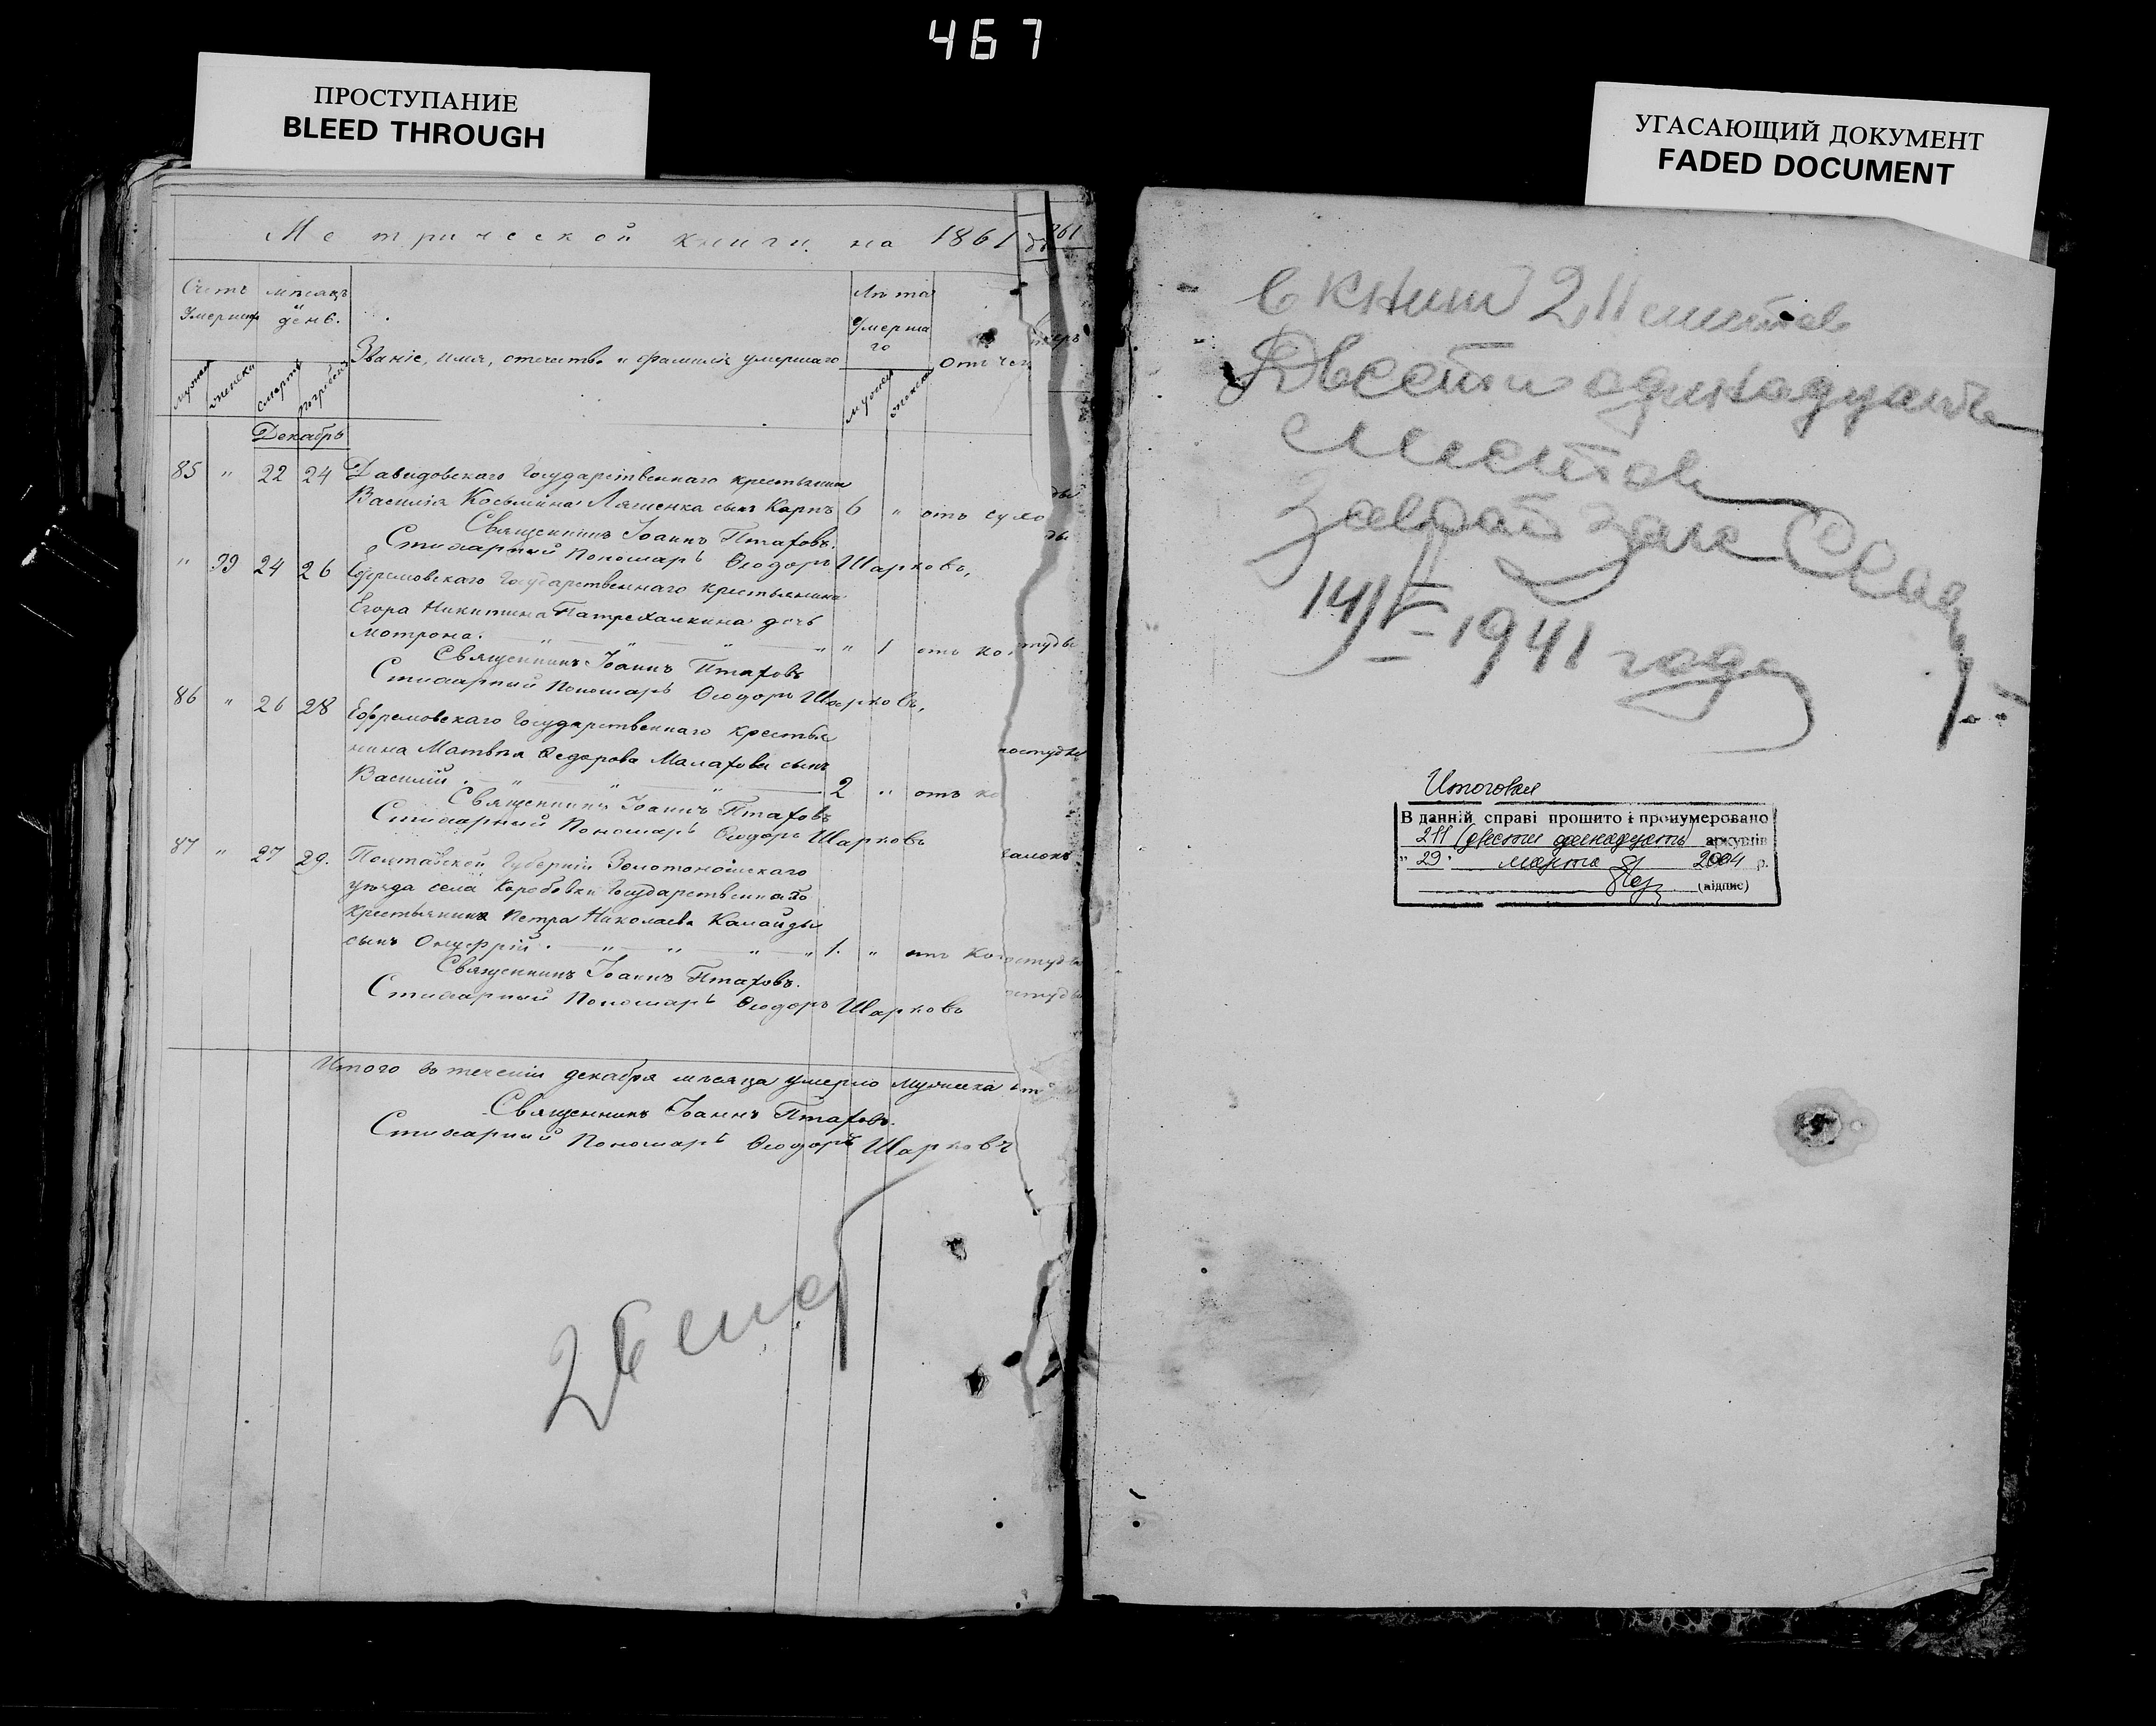 467
ПРОСТУПАНИЕ
BLEED THROUGH
УГАСАЮЩИЙ ДОКУМЕНТ
FADED DOCUMENT
Метрической книги на 1861
Счетъ умершихъ
мѣсяцъ и день.
Званіе, имя, отчество и фамилія умершаго
Лѣта умершаго
Отъ чего
мужеска
женска
смерть
погребен.
мужеск
женска
Декабрь
85 " 22 24 Давидовскаго Государственнаго крестьянина
Василія Косьмина Ляшенка сынъ Карпъ 6 " отъ сухо
Священникъ Іоаннъ Птаховъ.
Стихарный Пономарь Ѳеодоръ Шарковъ,
" 99 24 26 Ефремовскаго Государственнаго крестьянина
Егора Никитина дочь
Мотрона. " " " " 1 отъ ко
Священникъ Іоаннъ Птаховъ
Стихарный Пономарь Ѳеодоръ Шарковъ,
86 " 26 28 Ефремовскаго Государственнаго крестья
нина Матвѣя Ѳедорова Малахова сынъ
Василій. " " " 2 " отъ ко
Священникъ Іоаннъ Птаховъ
Стихарный Пономарь Ѳеодоръ Шарковъ
87 " 27 29. Полтавской Губерніи Золотоношскаго
уѣзда села Коробовки Государственнаго
крестьянина Петра Николаева Калайды
сынъ Онуфрій. " " " " 1. " отъ ко
Священникъ Іоаннъ Птаховъ.
Стихарный Пономарь Ѳеодоръ Шарковъ
Итого въ теченіи декабря мѣсяца умерло мужеска
Священникъ Іоаннъ Птаховъ.
Стихарный Пономарь Ѳеодоръ Шарковъ
в книг 211 листов
Двести одинадцать
листов
Зав
1941 года
Итоговая
В данній справі прошито і пронумеровано
211 (двести одинадцать) аркушів
" 29 " марта 2004 р.
(підпис)